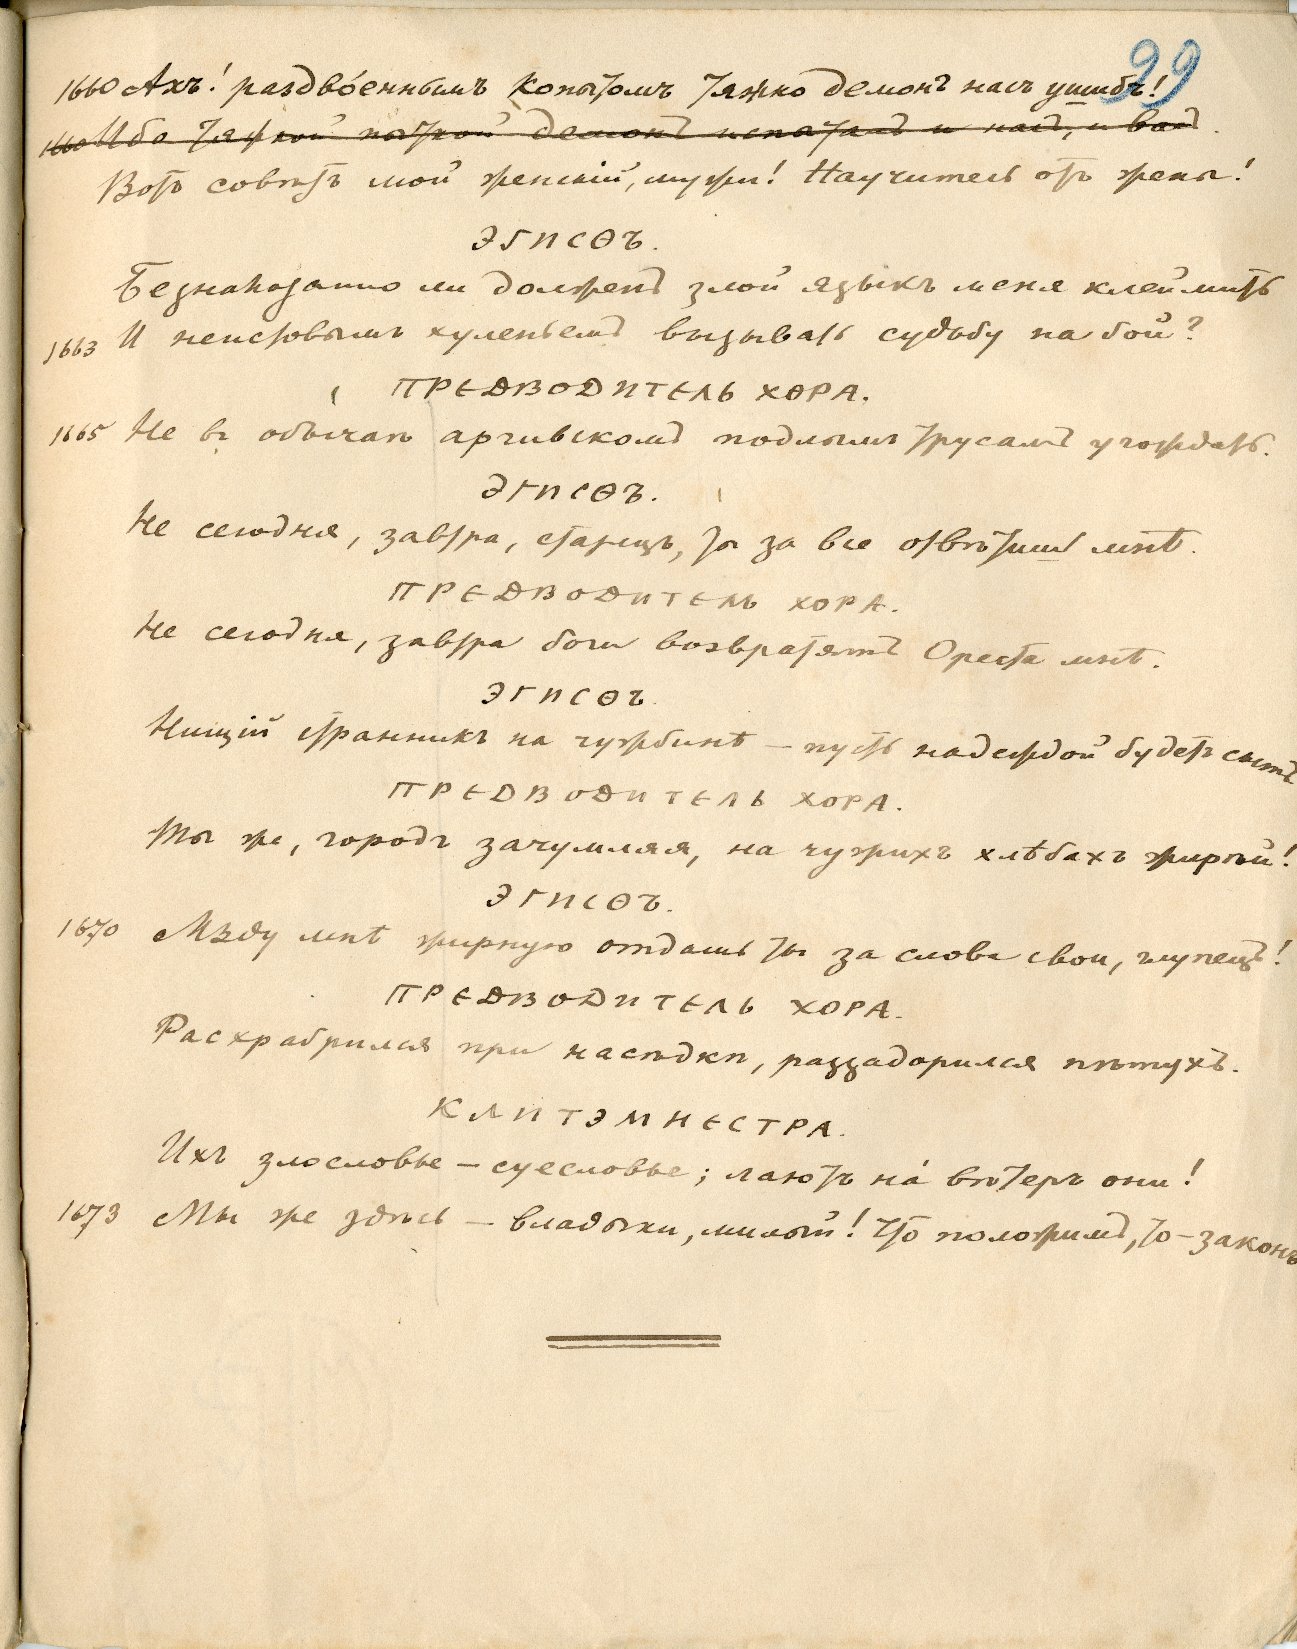 99
1660 Ахъ! раздвóеннымъ копытомъ тяжко демонъ насъ ушибъ!
1660 Ибо тяжкой пыткой демонъ испыталъ и насъ, и васъ.
Вотъ совѣтъ мой женскій, мужи! Научитесь отъ жены!
ЭГИСѲЪ.
Безнаказанно ли долженъ злой языкъ меня клеймить
1663 И неистовымъ хуленьемъ вызывать судьбу на бой?
ПРЕДВОДИТЕЛЬ ХОРА.
1665 Не въ обычаѣ аргивскомъ подлымъ трусамъ угождать.
ЭГИСѲЪ.
Не сегодня, завтра, старецъ, ты за все отвѣтишь мнѣ.
ПРЕДВОДИТЕЛЬ ХОРА.
Не сегодня, завтра боги возвратятъ Ореста мнѣ.
ЭГИСѲЪ.
Нищій странникъ на чужбинѣ – пусть надеждой будетъ сытъ
ПРЕДВОДИТЕЛЬ ХОРА.
Ты же, городъ зачумляя, на чужихъ хлѣбахъ жирѣй!
ЭГИСѲЪ.
1670 Мзду мнѣ жирную отдашь ты за слова свои, глупецъ!
ПРЕДВОДИТЕЛЬ ХОРА.
Расхрабрился при насѣдкѣ, раззадорился пѣтухъ.
КЛИТЭМНЕСТРА.
Ихъ злословье – суесловье; лаютъ нá вѣтеръ они!
1673 Мы же здѣсь – владыки, милый! Что положимъ, то – законъ